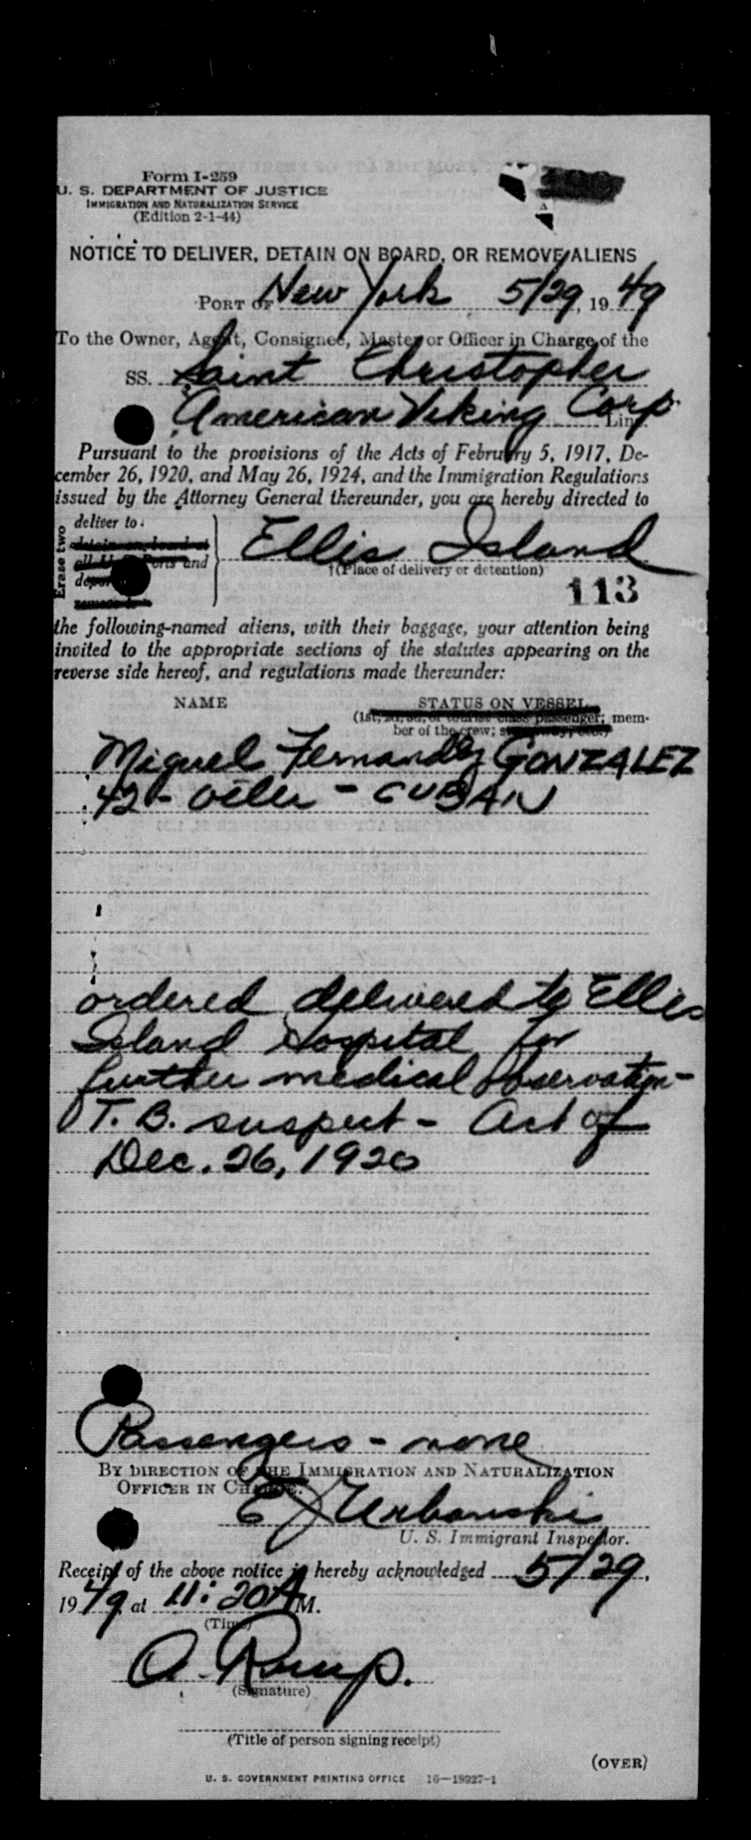 Form I-259
U. S. DEPARTMENT OF JUSTICE
IMMIGRATION AND NATURALIZATION SERVICE
(Edition 2-1-44)
NOTICE TO DELIVER, DETAIN ON BOARD, OR REMOVE ALIENS
PORT OF New York 5/29, 1949
To the Owner, Agent, Consignee, Master or Officer in Charge of the
SS. Saint Christopher
American Viking Corp Line
Pursuant to the provisions of the Acts of February 5, 1917, De-
cember 26, 1920, and May 26, 1924, and the Immigration Regulations
issued by the Attorney General thereunder, you are hereby directed to
Erase two
deliver to
Ports and
Ellis Island
†(Place of delivery or detention)
113
the following-named aliens, with their baggage, your attention being
invited to the appropriate sections of the statutes appearing on the
reverse side hereof, and regulations made thereunder:
NAME STATUS ON VESSEL
(1st, 2d, 3d, or tourist class passenger; mem-
ber of the crew;
Miguel Fernandez GONZALEZ
42 - oiler - CUBAN
ordered delivered to Ellis
Island Hospital for
further medical observation -
T. B. suspect - Act of
Dec. 26, 1920
Passengers - none
BY DIRECTION OF THE IMMIGRATION AND NATURALIZATION
OFFICER IN CHARGE.
E J Urbanski
U. S. Immigrant Inspector.
Receipt of the above notice is hereby acknowledged 5/29,
1949 at 11:20 A M.
(Time)
(Signature)
(Title of person signing receipt)
(OVER)
U. S. GOVERNMENT PRINTING OFFICE 16—18927-1